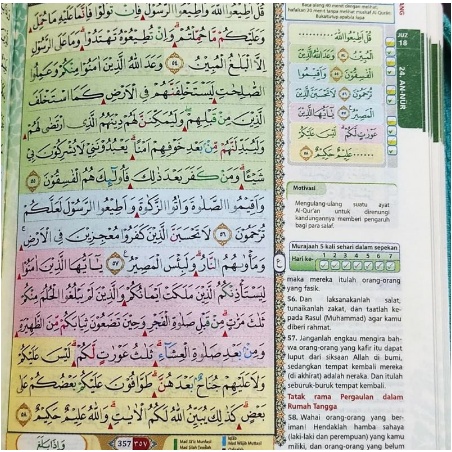 قُلْ أَطِيعُوا اللَّهَ وَأَطِيعُوا الرَّسُولَ فَإِنْ تَوَلَّوْا فَإِنَّمَا عَلَيْهِ مَا حُمِّلَ
وَعَلَيْكُمْ مَا حُمِّلْتُمْ وَإِنْ تُطِيعُوهُ تَهْتَدُوا وَمَا عَلَى الرَّسُولِ
إِلَّا الْبَلٰغُ الْمُبِينُ ٥٤ وَعَدَ اللَّهُ الَّذِينَ آمَنُوا مِنْكُمْ وَعَمِلُوا
الصّٰلِحٰتِ لَيَسْتَخْلِفَنَّهُمْ فِي الْأَرْضِ كَمَا اسْتَخْلَفَ
الَّذِينَ مِنْ قَبْلِهِمْ وَلَيُمَكِّنَنَّ لَهُمْ دِينَهُمُ الَّذِي ارْتَضٰى لَهُمْ
وَلَيُبَدِّلَنَّهُمْ مِنْ بَعْدِ خَوْفِهِمْ أَمْنًا يَعْبُدُونَنِي لَا يُشْرِكُونَ بِي
شَيْئًا وَمَنْ كَفَرَ بَعْدَ ذٰلِكَ فَأُولٰئِكَ هُمُ الْفٰسِقُونَ ٥٥
وَأَقِيمُوا الصَّلٰوةَ وَآتُوا الزَّكٰوةَ وَأَطِيعُوا الرَّسُولَ لَعَلَّكُمْ
تُرْحَمُونَ ٥٦ لَا تَحْسَبَنَّ الَّذِينَ كَفَرُوا مُعْجِزِينَ فِي الْأَرْضِ
وَمَأْوٰىهُمُ النَّارُ وَلَبِئْسَ الْمَصِيرُ ٥٧ يٰأَيُّهَا الَّذِينَ آمَنُوا
لِيَسْتَأْذِنْكُمُ الَّذِينَ مَلَكَتْ أَيْمَانُكُمْ وَالَّذِينَ لَمْ يَبْلُغُوا الْحُلُمَ مِنْكُمْ
ثَلٰثَ مَرّٰتٍ مِنْ قَبْلِ صَلٰوةِ الْفَجْرِ وَحِينَ تَضَعُونَ ثِيَابَكُمْ مِنَ الظَّهِيرَةِ
وَمِنْ بَعْدِ صَلٰوةِ الْعِشَاءِ ثَلٰثُ عَوْرٰتٍ لَكُمْ لَيْسَ عَلَيْكُمْ
وَلَا عَلَيْهِمْ جُنَاحٌ بَعْدَهُنَّ طَوّٰفُونَ عَلَيْكُمْ بَعْضُكُمْ عَلٰى
بَعْضٍ كَذٰلِكَ يُبَيِّنُ اللَّهُ لَكُمُ الْآيٰتِ وَاللَّهُ عَلِيمٌ حَكِيمٌ ٥٨
وَإِذَا بَلَغَ
357 ٣٥٧
JUZ
18
24. AN-NŪR
قُلْ أَطِيعُوا اللَّهَ
الْمُبِينُ ٥٤ وَعَدَ اللَّهُ الَّذِينَ
الْفٰسِقُونَ ٥٥ وَأَقِيمُوا
تُرْحَمُونَ ٥٦ لَا تَحْسَبَنَّ الَّذِينَ
الْمَصِيرُ ٥٧ يٰأَيُّهَا الَّذِينَ
عَوْرٰتٍ لَكُمْ لَيْسَ عَلَيْكُمْ
عَلِيمٌ حَكِيمٌ ٥٨
Motivasi
Mengulang-ulang suatu ayat
Al-Qur'an untuk direnungi
kandungannya memberi pengaruh
bagi para salaf.
Murajaah 5 kali sehari dalam sepekan
Hari ke- 1 2 3 4 5 6 7
maka mereka itulah orang-orang
yang fasik.
56. Dan laksanakanlah salat,
tunaikanlah zakat, dan taatlah ke-
pada Rasul (Muhammad) agar kamu
diberi rahmat.
57. Janganlah engkau mengira bah-
wa orang-orang yang kafir itu dapat
luput dari siksaan Allah di bumi,
sedangkan tempat kembali mereka
(di akhirat) adalah neraka. Dan itulah
seburuk-buruk tempat kembali.
Tatak rama Pergaulan dalam
Rumah Tangga
58. Wahai orang-orang yang ber-
iman! Hendaklah hamba sahaya
(laki-laki dan perempuan) yang kamu
miliki, dan orang-orang yang belum